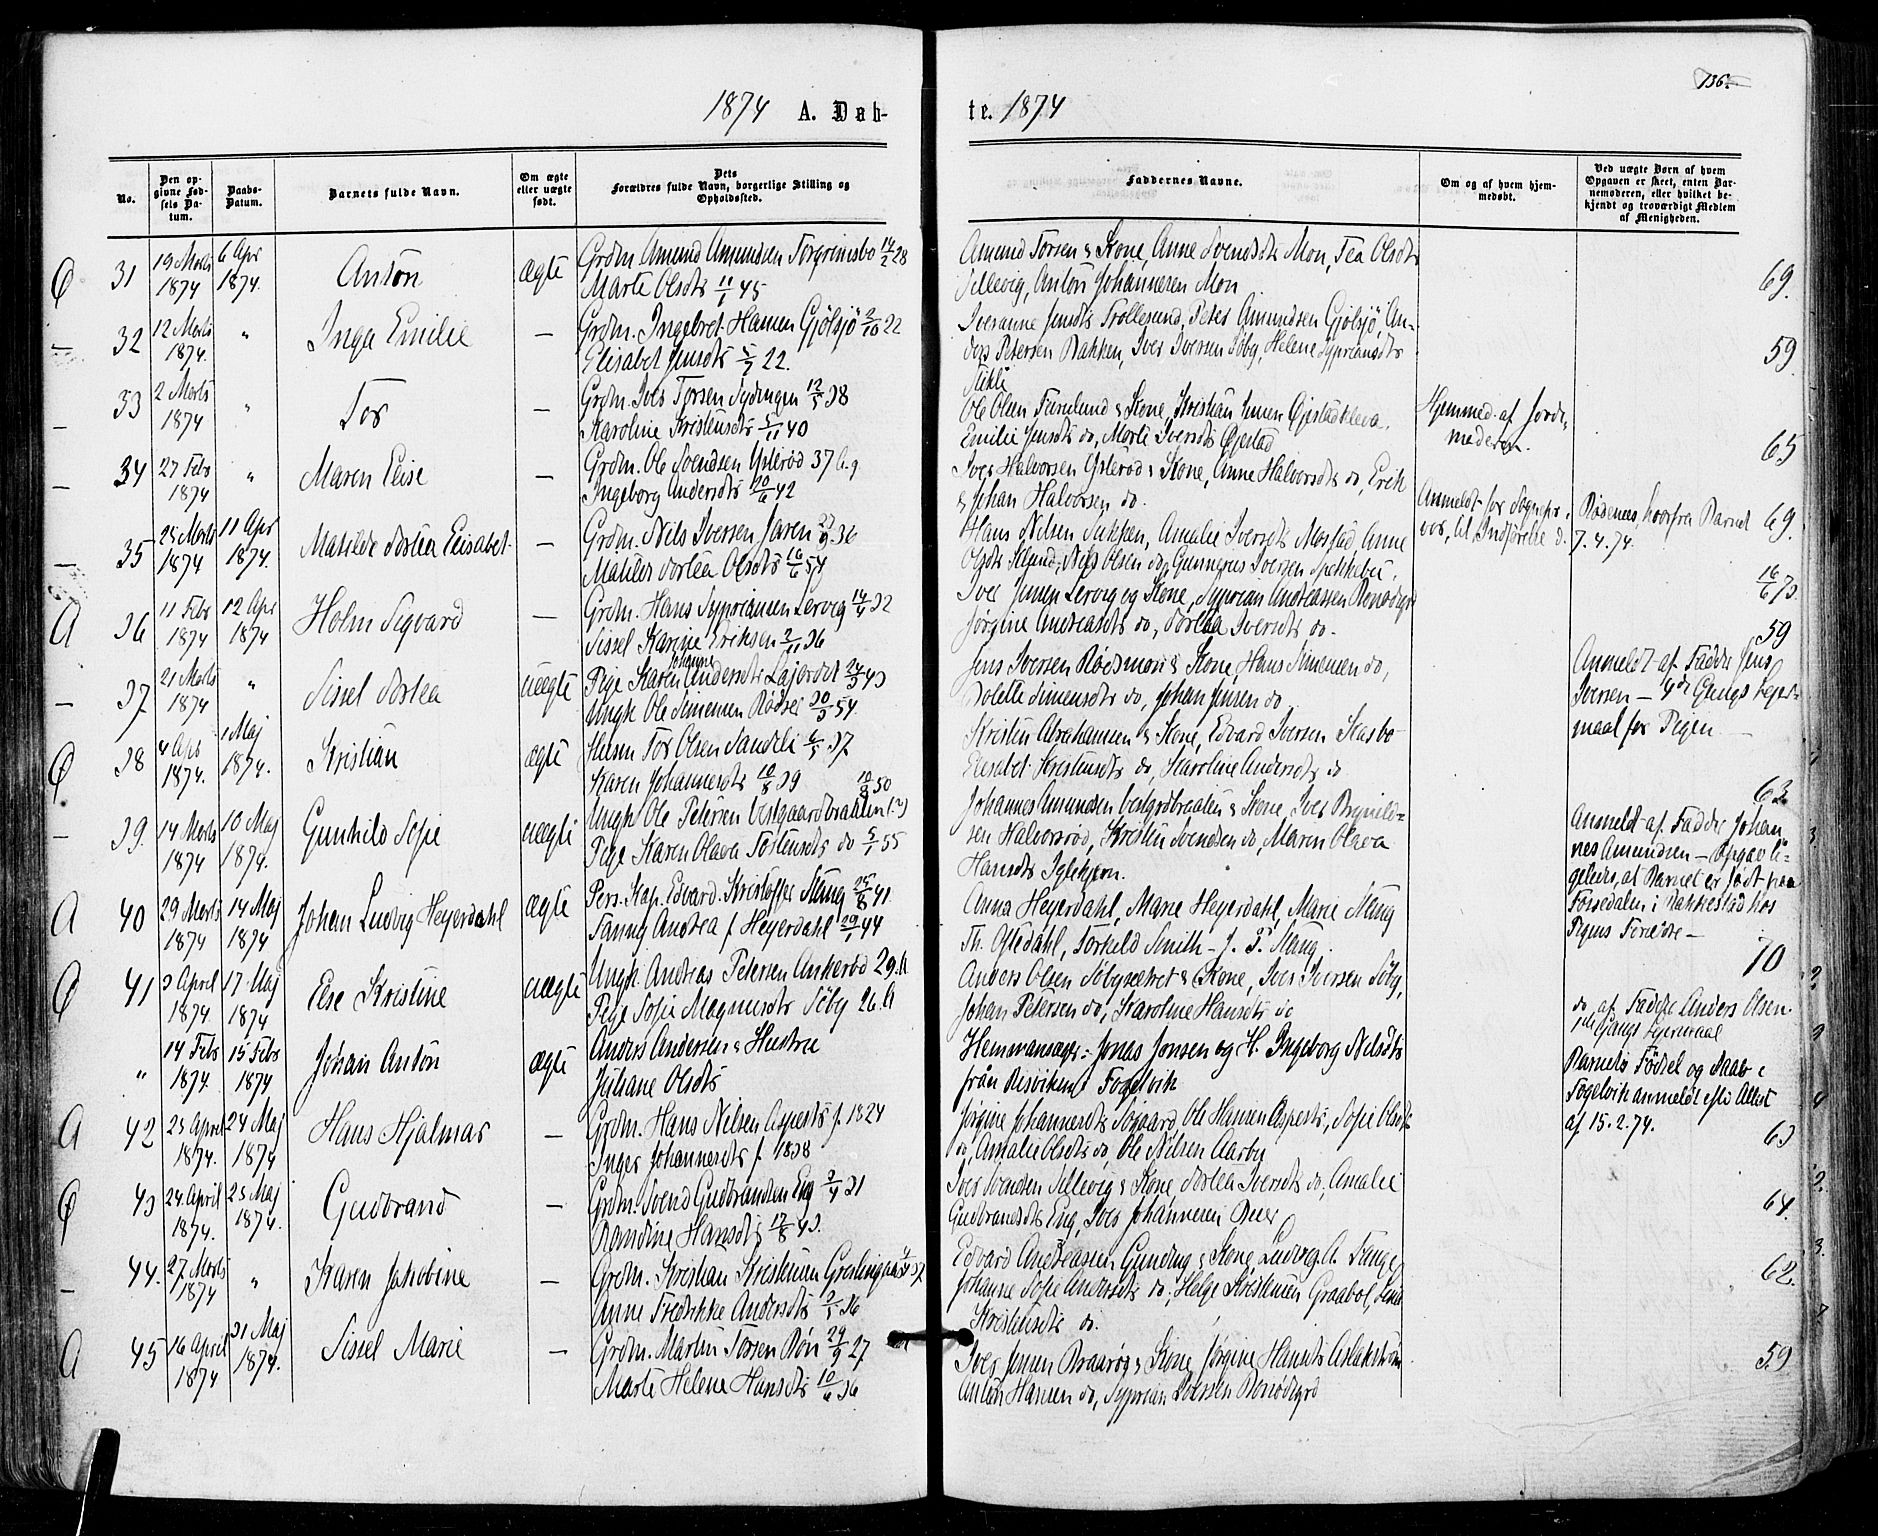 136.
1874 A. Døb-
te. 1874
No.
Den op-
givne Fød-
sels Da-
tum.
Daabs-
Datum.
Barnets fulde Navn.
Om ægte
eller uægte
født.
Dets
Forældres fulde Navn, borgerlige Stilling og
Opholdssted.
Faddernes Navne.
Om og af hvem hjem-
medøbt.
Ved uægte Børn af hvem
Opgaven er skeet, enten Bar-
nemoderen, eller hvilket be-
kjendt og troværdigt Medlem
af Menigheden.
31 19 Marts 1874 6 Apr 1874. Anton ægte
Grdm. Amund Amundsen Torgrimsbo 14/2 28
Marte Olsdtr 11/1 45
Amund Torsen & Kone, Anne Svendsdtr Mon, Tea Olsdtr
Sillevig, Anton Johannesen Mon
69.
32 12 Marts 1874. " Inga Emilie —
Grdm. Ingebret Hansen Gjølsjø 3/10 22
Elisabet Jensdtr 22.
Iversanne Jensdtr Trollerud, Peter Amundsen Gjølsjø, An-
ders Petersen Bakken, Iver Iversen Søby, Helene Sypriansdtr
59.
33 2 Marts 1874 " Tor —
Grdm. Iver Torsen 12/5 38
Karoline Kristensdtr 5/11 40
Ole Olsen Furulund & Kone, Kristian Jensen Øiestadkleva,
Emilie Jensdtr do, Marte Iversdtr Øiestad
Hjemmed. af Jorde-
moderen.
65
34 27 Febr 1874 " Maren Elise —
Grdm. Ole Svendsen Ysterød 37 G. g
Ingeborg Andersdtr 20/6 42
Iver Halvorsen Ysterød & Kone, Anne Halvorsdtr do, Erik
& Johan Halvorsen do.
Anmeldt for Sognepr
Rødenes, hvorfra Barnet
7. 4. 74.
69.
35 25 Marts 1874 11 Apr 1874. Matilde Dorlea Elisabet —
Grdm. Nils Iversen Jaren 27/9 36
Matilde Dorlea Olsdtr 16/6 54
Hans Nilsen Sukken, Amalie Iversdtr Mosstad, Anne
Olsdtr, Nils Olsen do, Gunnerus Iversen
16/6 73
36 11 Febr 1874 12 Apr 1874 Holm Sigvard —
Grdm. Hans Sypriansen Lervig 14/4 32
Sissel Karine Eriksen 2/11 36
Iver Jensen Lervig og Kone, Syprian Andreassen Bønødegrd
Jørgine Andreasdtr do, Torlea Iversdtr do.
59
37 21 Marts 1874 " Sissel Dorlea uægte
Pige Karen Johanne Andersdtr 24/3 43
Ungk Ole Simensen Rødsei 30/3 54.
Jens Iversen Rødsmon & Kone, Hans Simensen do,
Bolette Simensdtr do, Johan Jensen do
Anmeldt af Fadder Jens
Iversen — 4de Gangs Leier-
maal for Pigen
38 4 Apr 1874. 1 Maj 1874. Kristian ægte
Husm Tor Olsen Sandeli 6/5 37
Karen Johannesdtr 10/8 39
Kristin Abrahamsen & Kone, Edvard Iversen Kasbo
Elisabet Kristensdtr do, Karoline Andersdtr do
63
39. 14 Marts 1874 10 Maj 1874. Gunhild Sofie uægte
Ungk Ole Petersen Vestgaardbraaten (?) 10/8 50
Pige Karen Olava Torstensdtr do 5/1 55
Johannes Amundsen Vestgrdbraaten & Kone, Iver Brynild-
sen Halvorsrød, Kristin Svendsen do, Maren Olava
Hansdtr
Anmeldt af Fadder Johan-
nes Amundsen — Opgav li-
geledes, at Barnet er født paa
i Rakkestad hos
Pigens Forældre —
40 29 Marts 1874 14 Maj 1874 Johan Ludvig Heyerdahl ægte
Pers. Kap. Edvard Kristoffer Stang 25/8 41
Fanny Andrea f Heyerdahl 20/1 44
Anna Heyerdahl, Marie Heyerdahl, Marie Stang
Th. Gjledahl, Torkeld Smith — J. P. Stang
70
41 3 April 1874. 17 Maj 1874 Else Kristine uægte
Ungk. Andreas Petersen Ankerød 29. A
Pige Sofie Magnusdtr Søby 26. A
Anders Olsen Søbyseetret & Kone, Iver Iversen Søby,
Johan Petersen do, Karoline Hansdtr do
do, af Fadder Anders Olsen
1ste Gangs Leiermaal
" 14 Febr 1874. 15 Febr 1874 Johan Anton ægte
Anders Andersen & Hustru
Juliane Olsdtr
Hemmansager: Jonas Jonsen og H. Ingeborg Nilsdtr
från Resviken i Fogelvik
Barnets Fødsel og Daab i
Fogelvik anmeldt efter Attest
af 15.2.74.
42 25 April 1874. 24 Maj 1874 Hans Hjalmar —
Grdm. Hans Nilsen Aspestr f. 1824
Inger Johannesdtr f 1838
Jørgine Johannesdtr, Ole Hansen Aspestr, Sofie Olsdtr
do, Amalie Olsdtr do, Ole Nilsen Aarby
63
43 24 April 1874. 25 Maj 1874. Gudbrand —
Grdm. Svend Gudbrandsen Eng 3/4 31
Randine Hansdtr 17/8 43.
Iver Svendsen Sillevig & Kone, Dorlea Iversdtr do, Amalie
Gudbrandsdtr Eng, Iver Johannesen Buer
64.
44. 27 Marts 1874 " Karen Jakobine —
Grdm. Kristian Kristensen 37
Anne Fredrikke Andersdtr 3/5 36
Edvard Andreassen Gunding & Kone, Ludvig A. Tange,
Johanne Sofie Andersdtr do, Helge Kristensen Graabøl,
Kristensdtr do.
62.
45 16 April 1874 31 Maj 1874. Sissel Marie —
Grdm. Martin Torsen Bøn 24/9 27
Marte Helene Hansdtr 10/6 36
Iver Jensen Braarød & Kone, Jørgine Hansdtr Aslakstrøm
Anton Hansen do, Syprian Iversen Bønødegrd
59